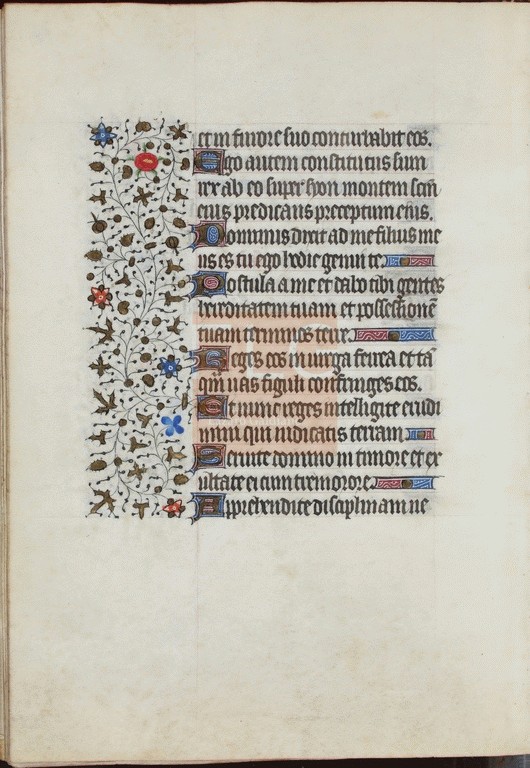 et in furore suo conturbabit eos.
Ego autem constitutus sum
rex ab eo super syon montem scm̄
eius predicans preceptum eius.
Dominus dixit ad me filius me
us es tu ego hodie genui te
Postula a me et dabo tibi gentes
hereditatem tuam et possessionē
tuam terminos terre.
Reges eos in virga ferrea et tā
qm̄ vas figuli confringes eos.
Et nunc reges intelligite erudi
mini qui iudicatis terram
Servite domino in timore et ex
ultate ei cum tremorore.
Apprehendite disciplinam ne